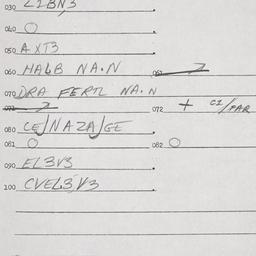 030 LIBN3
040 O
050 AXT3
060 HALB NA.N 061
070 DRA FERTL NA.N
071 072 + CI/FAR
080 CE/NAZA/GE
081 O 082 O
090 EL3V3
100 CVEL3V3